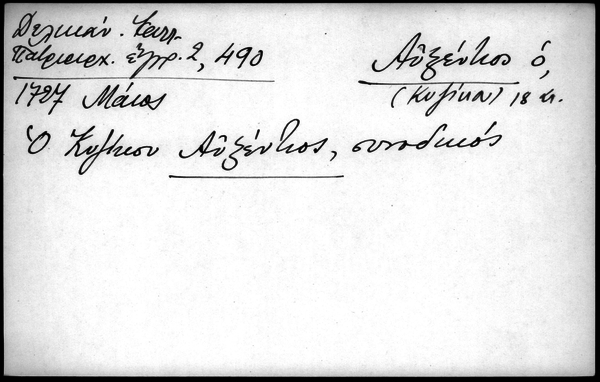 Δελικάν. Καλλ.
Πατριαρχ. ἔγγρ. 2, 490
Αὐξέντιος ὁ,
1727 Μάιος
(Κυζίκου) 18 αι.
Ὁ Κυζίκου Αὐξέντιος, συνοδικός